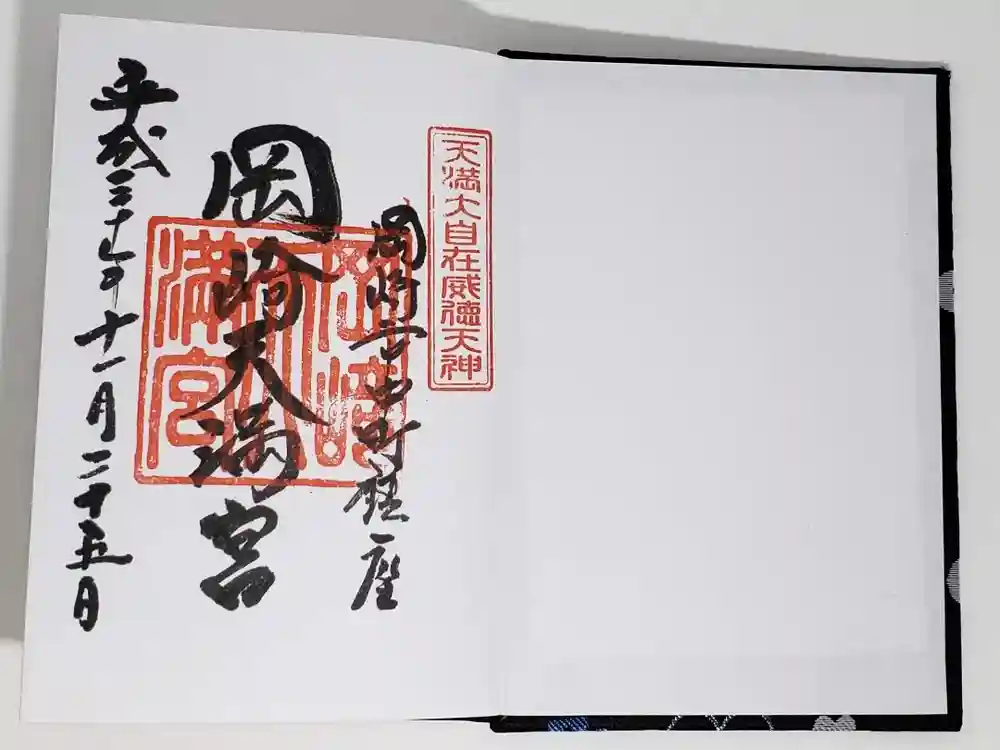 天満大自在威徳天神
岡崎宮中町鎮座
岡崎天満宮
岡崎天満宮
平成三十年十一月二十五日